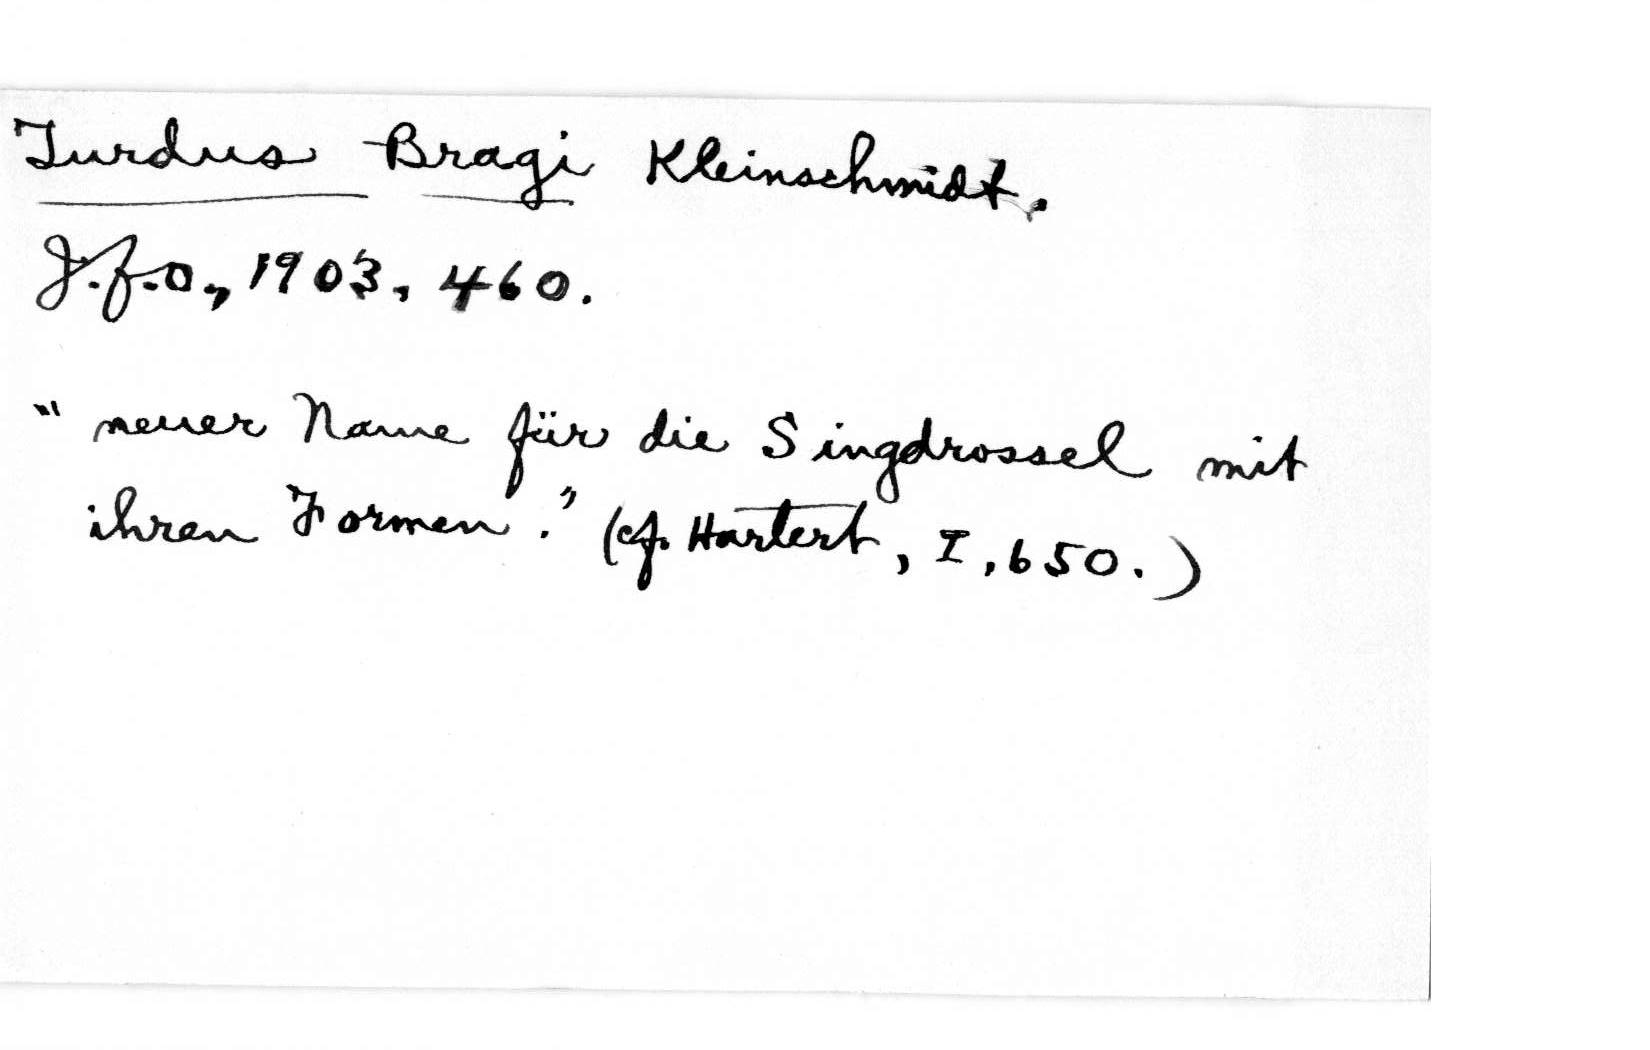 Turdus Bragi Kleinschmidt.
J.f.O., 1903, 460.
"neuer Name für die Singdrossel mit
ihren Formen." (cf. Hartert, I, 650.)